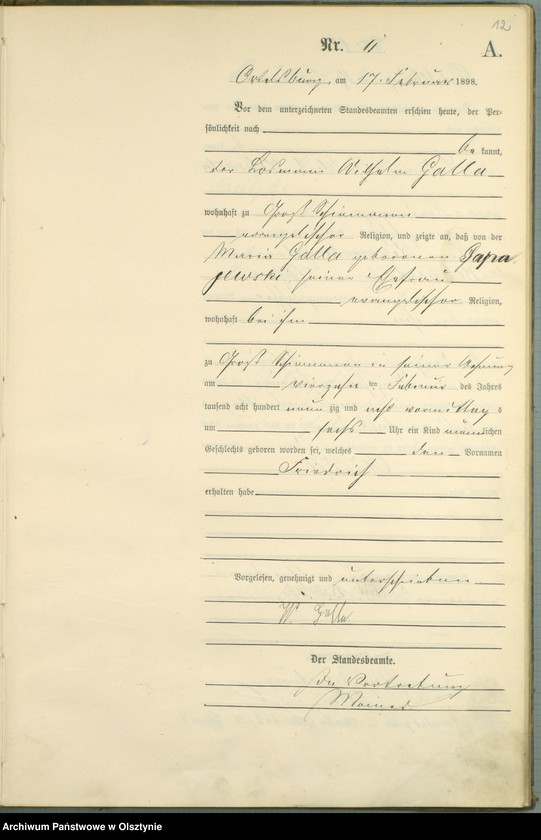 12
Nr. 11
A.
Ortelsburg, am 17. Februar 1898.
Vor dem unterzeichneten Standesbeamten erschien heute, der Per-
sönlichkeit nach
be kannt,
der Losmann Wilhelm Galla
wohnhaft zu Groß Schiemanen
evangelischer Religion, und zeigte an, daß von der
Maria Galla geborenen Papa
jewski seiner Ehefrau
evangelischer Religion,
wohnhaft bei ihm
zu Groß Schiemanen in seiner Wohnung
am vierzehn ten Februar des Jahres
tausend acht hundert neun zig und acht vormittag s
um sechs Uhr ein Kind männlichen
Geschlechts geboren worden sei, welches den Vornamen
Friedrich
erhalten habe
Vorgelesen, genehmigt und unterschrieben
W. Galla
Der Standesbeamte.
In Vertretung
Archiwum Państwowe w Olsztynie